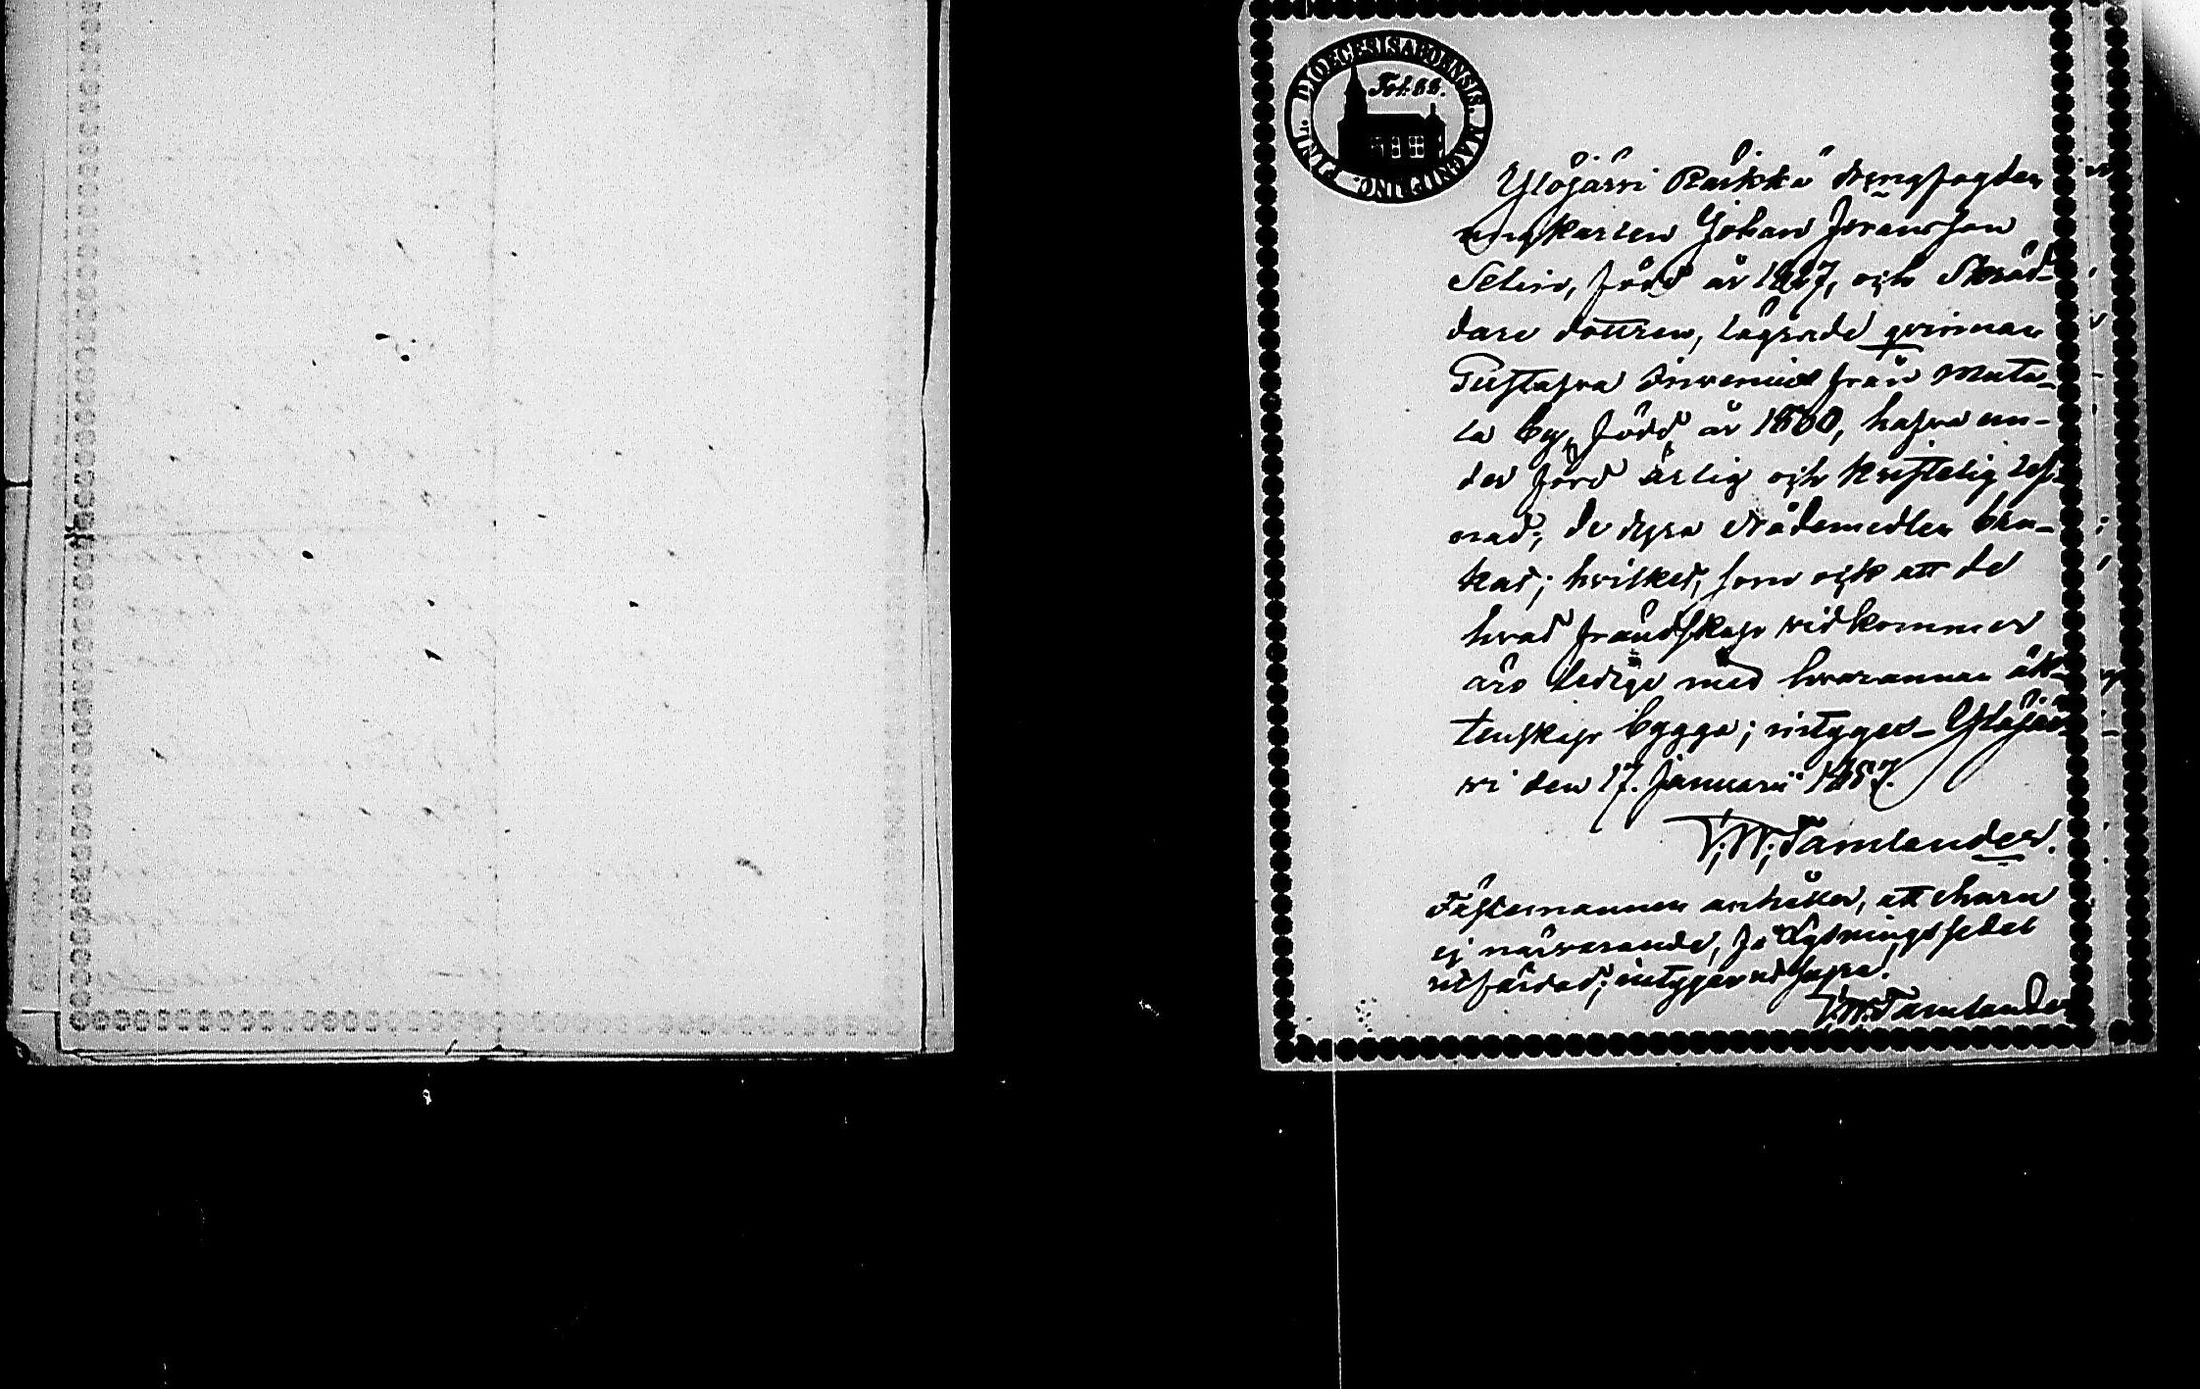 DIOECESIS ABOENSIS. MAGNI PRINC. FINL.
Fol. 68.
Ylöjärvi Räikkä drengfogden
ungkarlen Johan Jeransson
Selin, född år 1827, och Skräd-
dare dottren, lägrade qvinnan
Gustafva från Mata-
la by, född år 1830, hafva un-
der förd ärlig och kristelig lef-
nad, de dyra Nådemedlen bru-
kat; hvilket, som ock att de
hvad frändskap vidkommer
äro ledige med hvarannan äk-
tenskap bygga; intygar Ylöjär-
vi den 17. Januarii 1857.
F. W. Tamlander.
Fästemannen anhåller, att ehuru
ej närvarande, få Lysningssedel
utfärdad; intygar ut supra.
F. W. Tamlander